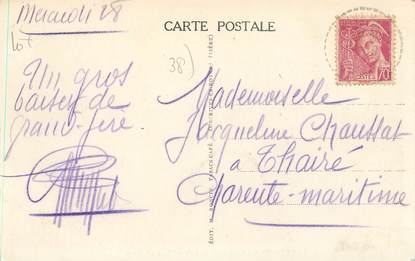 Mercredi 28
CARTE POSTALE
lot
38)
Un gros
baiser de
grand-père
Mademoiselle
Jacqueline Chaussat
a Thairé
Charente-maritime
POSTES
70